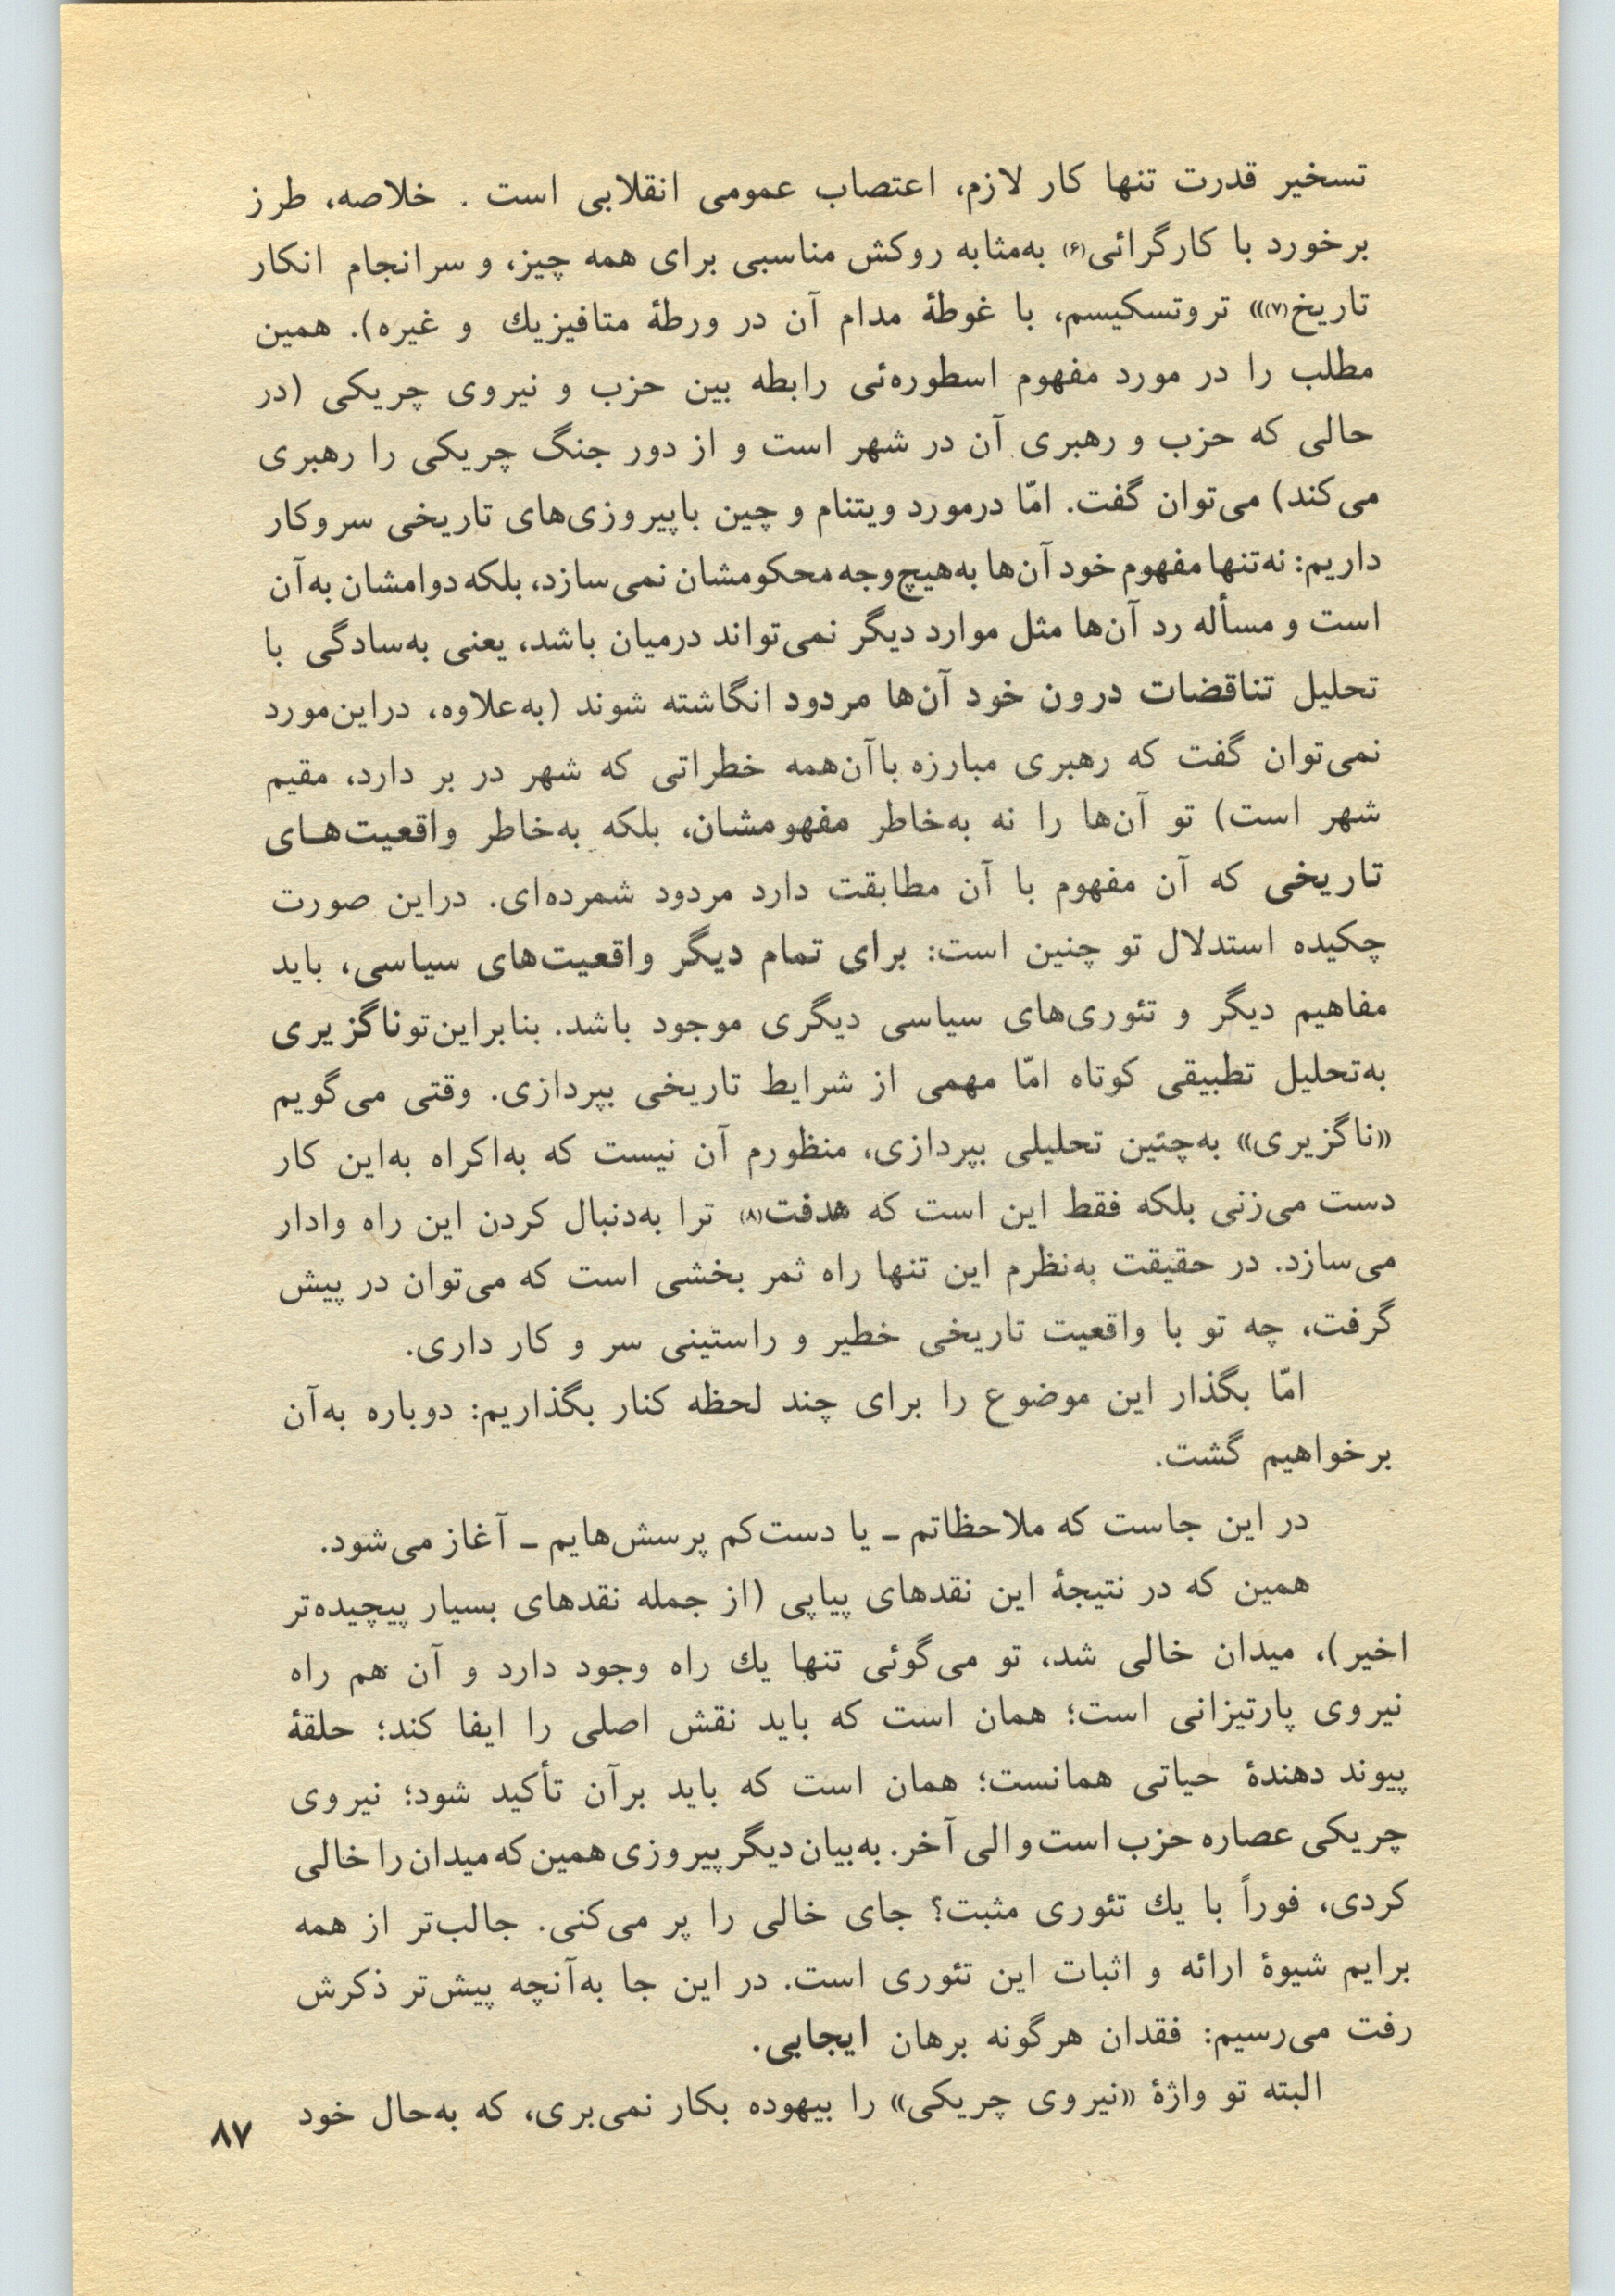 تسخیر قدرت تنها کار لازم، اعتصاب عمومی انقلابی است . خلاصه، طرز
برخورد با کارگرائی(۶) به‌مثابه روکش مناسبی برای همه چیز، و سرانجام انکار
تاریخ(۷)» تروتسکیسم، با غوطهٔ مدام آن در ورطهٔ متافیزیك و غیره). همین
مطلب را در مورد مفهوم اسطوره‌ئی رابطه بین حزب و نیروی چریکی (در
حالی که حزب و رهبری آن در شهر است و از دور جنگ چریکی را رهبری
می‌کند) می‌توان گفت. امّا درمورد ویتنام و چین باپیروزی‌های تاریخی سروکار
داریم: نه‌تنها مفهوم خود آن‌ها به‌هیچ‌وجه محکومشان نمی‌سازد، بلکه دوامشان به‌آن
است و مسأله رد آن‌ها مثل موارد دیگر نمی‌تواند درمیان باشد، یعنی به‌سادگی با
تحلیل تناقضات درون خود آن‌ها مردود انگاشته شوند (به‌علاوه، دراین‌مورد
نمی‌توان گفت که رهبری مبارزه باآن‌همه خطراتی که شهر در بر دارد، مقیم
شهر است) تو آن‌ها را نه به‌خاطر مفهومشان، بلکه به‌خاطر واقعیت‌هـای
تاریخی که آن مفهوم با آن مطابقت دارد مردود شمرده‌ای. دراین صورت
چکیده استدلال تو چنین است: برای تمام دیگر واقعیت‌های سیاسی، باید
مفاهیم دیگر و تئوری‌های سیاسی دیگری موجود باشد. بنابراین‌توناگزیری
به‌تحلیل تطبیقی کوتاه امّا مهمی از شرایط تاریخی بپردازی. وقتی می‌گویم
«ناگزیری» به‌چنین تحلیلی بپردازی، منظورم آن نیست که به‌اکراه به‌این کار
دست می‌زنی بلکه فقط این است که هدفت(۸) ترا به‌دنبال کردن این راه وادار
می‌سازد. در حقیقت به‌نظرم این تنها راه ثمر بخشی است که می‌توان در پیش
گرفت، چه تو با واقعیت تاریخی خطیر و راستینی سر و کار داری.
امّا بگذار این موضوع را برای چند لحظه کنار بگذاریم: دوباره به‌آن
برخواهیم گشت.
در این جاست که ملاحظاتم ـ یا دست‌کم پرسش‌هایم ـ آغاز می‌شود.
همین که در نتیجهٔ این نقدهای پیاپی (از جمله نقدهای بسیار پیچیده‌تر
اخیر)، میدان خالی شد، تو می‌گوئی تنها یك راه وجود دارد و آن هم راه
نیروی پارتیزانی است؛ همان است که باید نقش اصلی را ایفا کند؛ حلقهٔ
پیوند دهندهٔ حیاتی همانست؛ همان است که باید برآن تأکید شود؛ نیروی
چریکی عصاره حزب است و الی آخر. به‌بیان دیگر پیروزی همین که میدان را خالی
کردی، فوراً با یك تئوری مثبت؟ جای خالی را پر می‌کنی. جالب‌تر از همه
برایم شیوهٔ ارائه و اثبات این تئوری است. در این جا به‌آنچه پیش‌تر ذکرش
رفت می‌رسیم: فقدان هرگونه برهان ایجابی.
البته تو واژهٔ «نیروی چریکی» را بیهوده بکار نمی‌بری، که به‌حال خود
۸۷